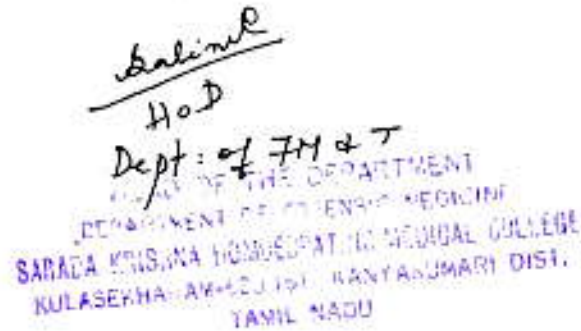 HoD
Dept: of FM & T
HEAD OF THE DEPARTMENT
DEPARTMENT OF FORENSIC MEDICINE
SARADA KRISHNA HOMOEOPATHIC MEDICAL COLLEGE
KULASEKHARAM- KANYAKUMARI DIST.
TAMIL NADU